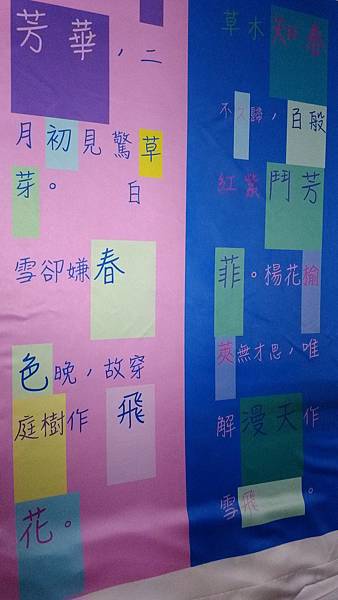 芳華，二
月初見驚草
芽。白
雪卻嫌春
色晚，故穿
庭樹作飛
花。
草木知春
不久歸，百般
紅紫鬥芳
菲。楊花榆
莢無才思，唯
解漫天作
雪飛。